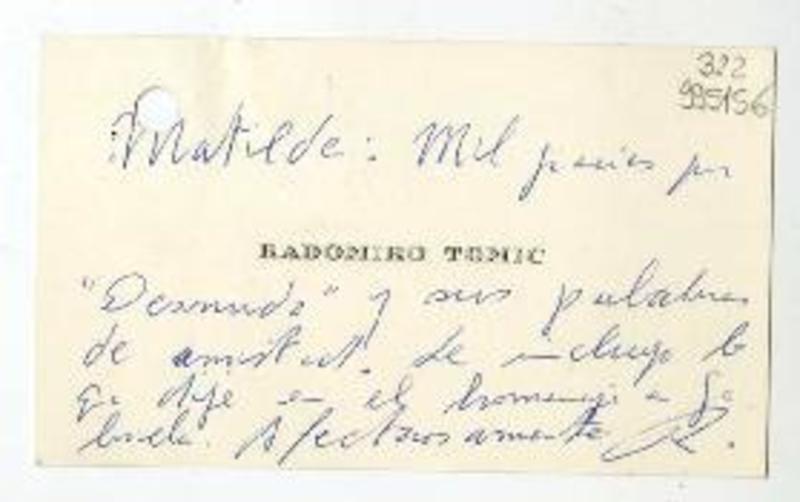 322
995156
Matilde: Mil gracias por
RADOMIRO TOMIC
"Desnudo" y sus palabras
de amistad. Le incluyo lo
qe dije en el homenaje a Ga
briela. Afectuosamente R.